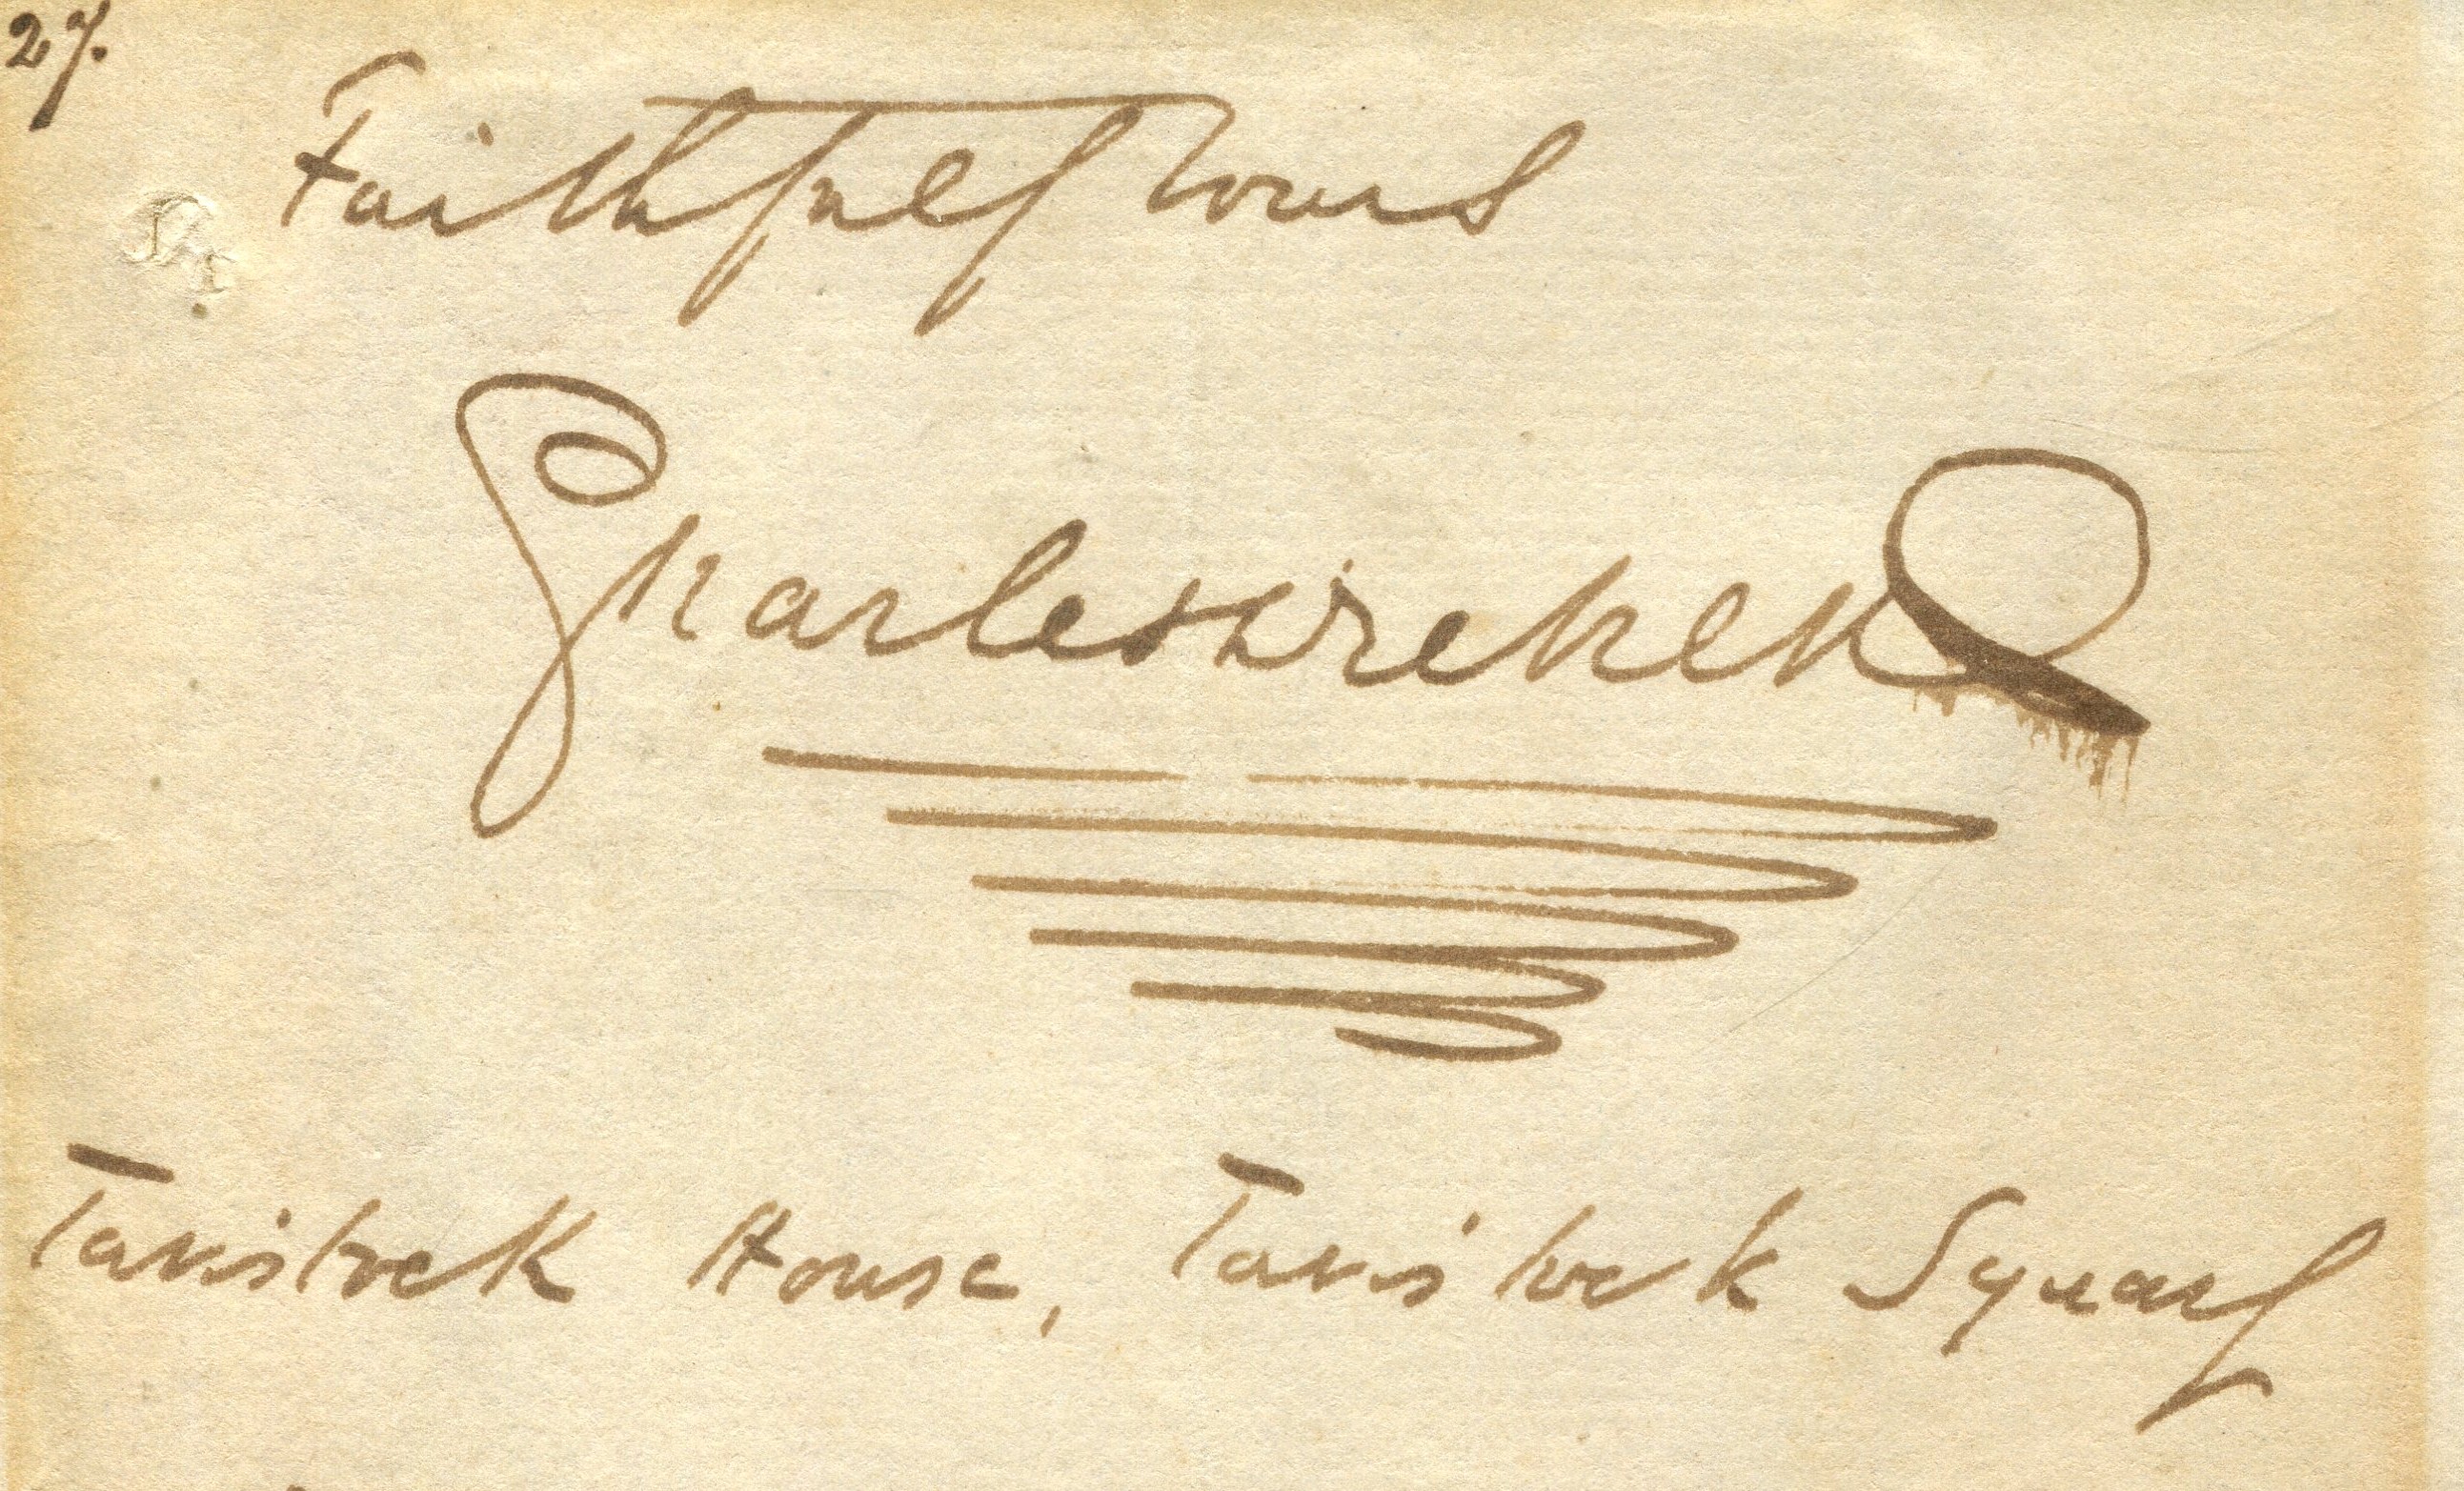 27.
Faithfully Yours
Charles Dickens
Tavistock House, Tavistock Square